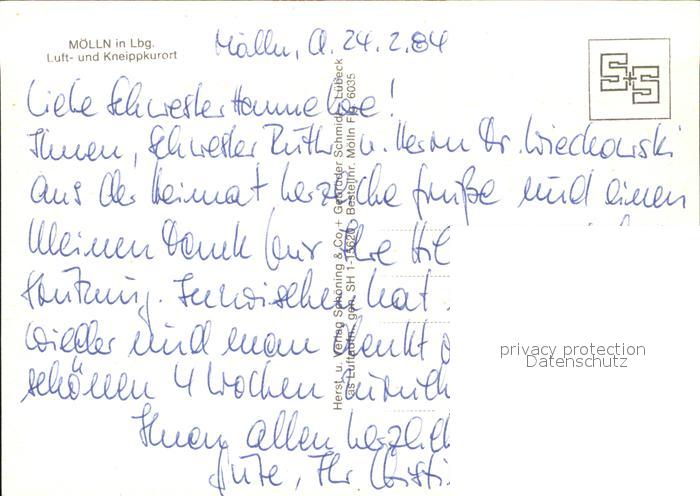 MÖLLN in Lbg.
Luft- und Kneippkurort
Mölln, d. 24.2.84
Liebe Schwester Hannelore!
Ihnen, Schwester Ruth u. Herrn Dr. Wiechowski
aus der Heimat herzliche Grüße und einen
kleinen Dank für Ihre Hil
Inzwischen hat
wieder und man denkt
schönen 4 Wochen zurück
Ihnen allen herzlich
Gute, Ihr Christi
Herst. u. Verlag Schöning & Co + Gebrüder Schmidt, Lübeck
Luftaufn. gen. SH 1-15620 Bestellnr. Mölln 6035
S+S
privacy protection
Datenschutz